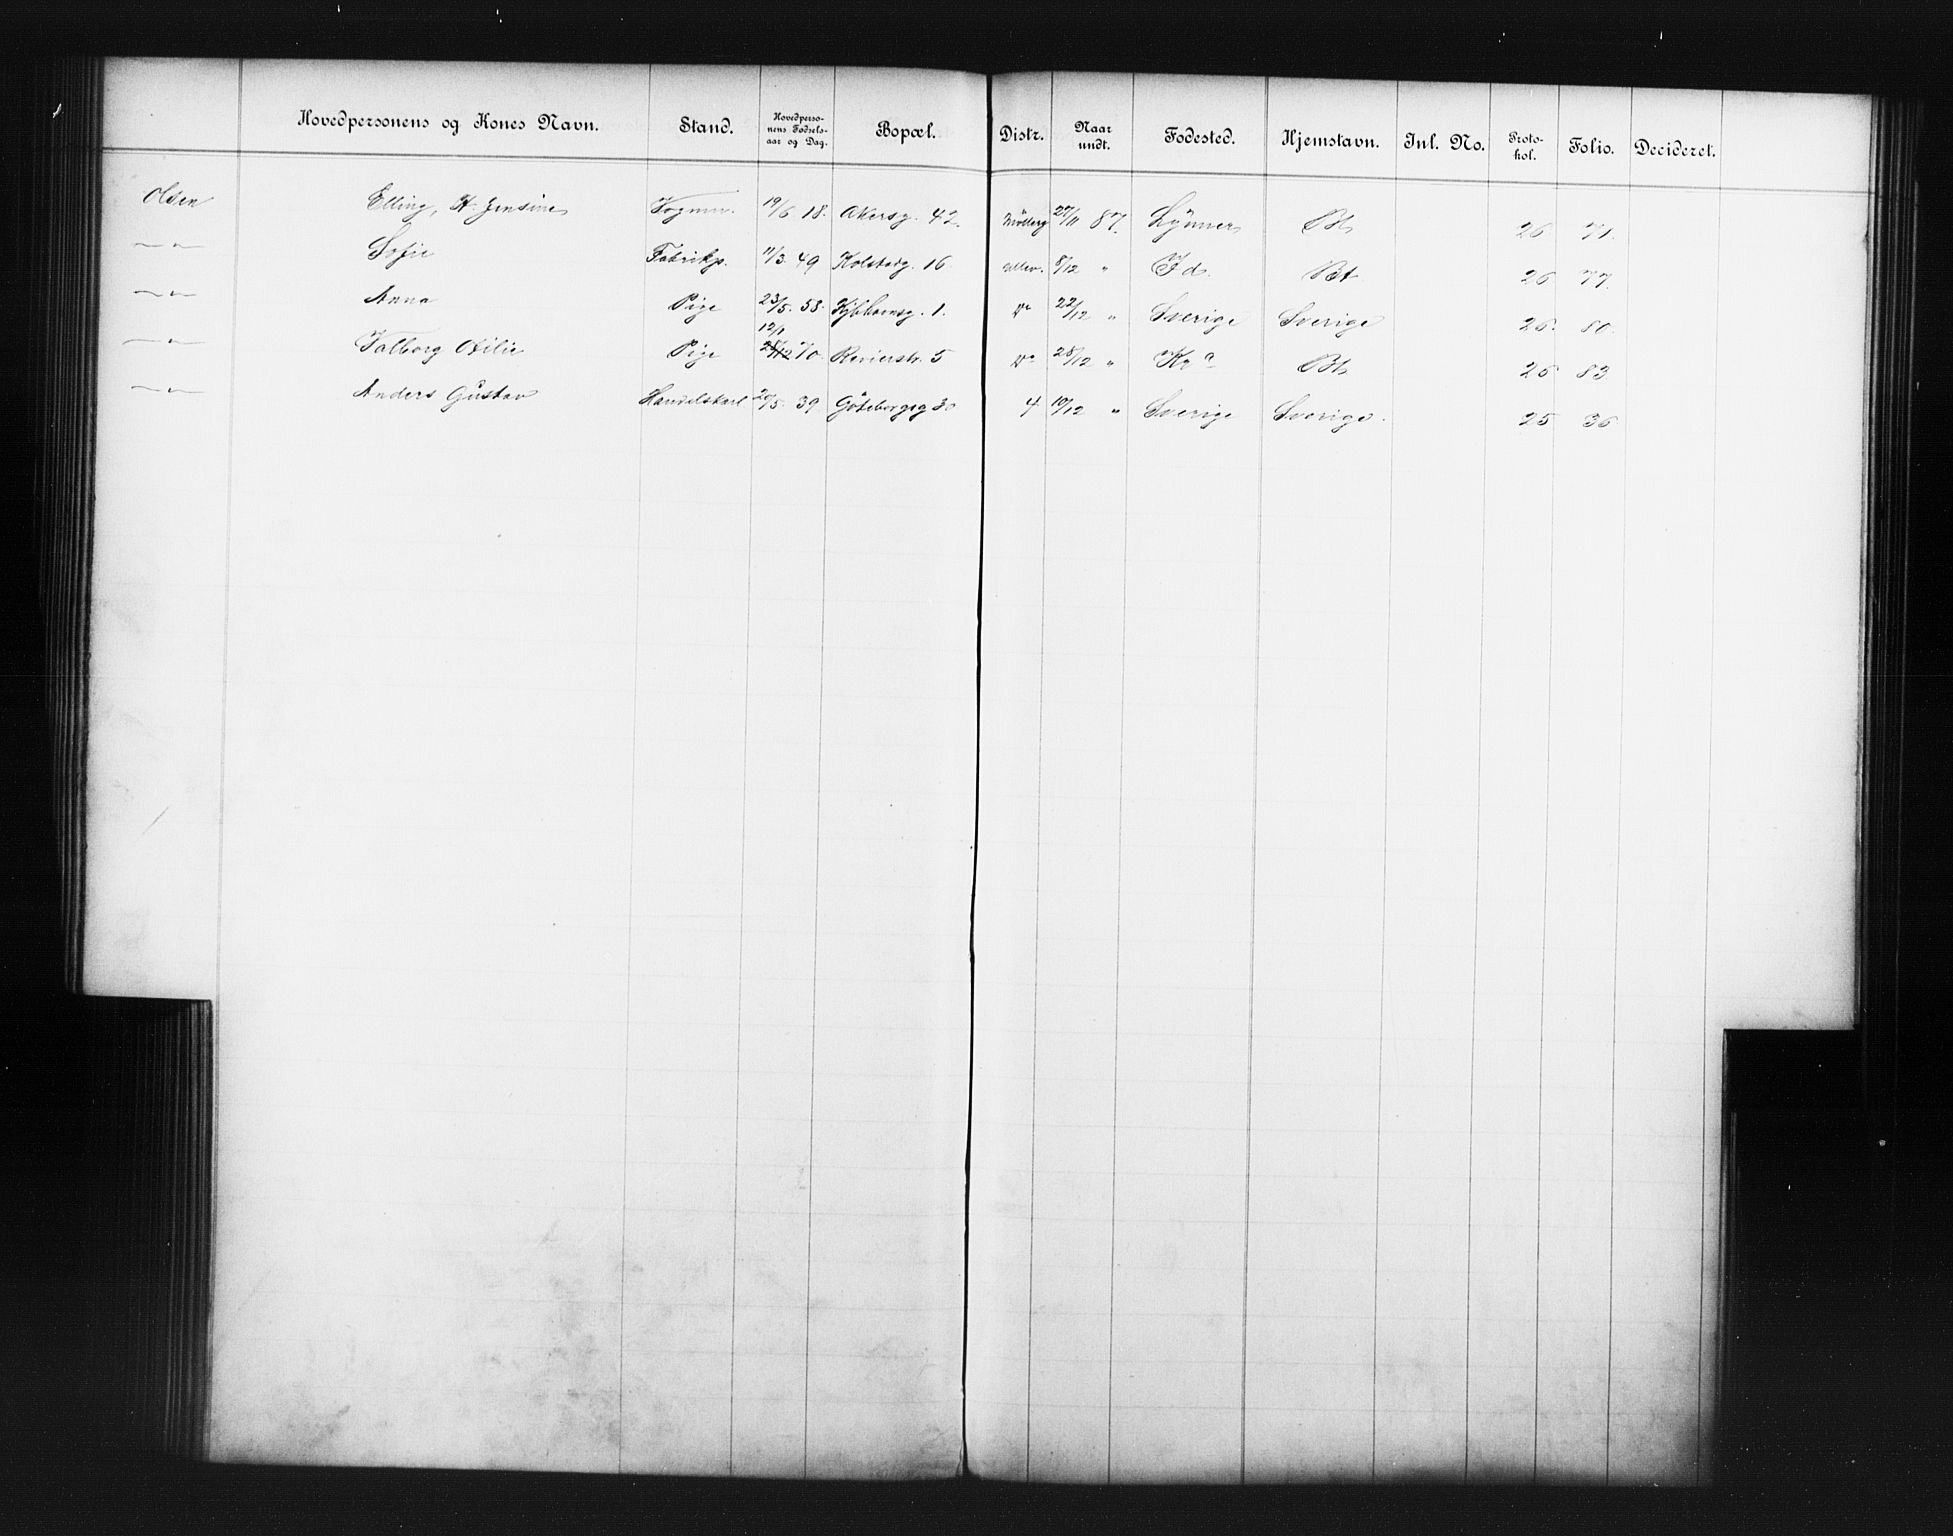 Hovedpersonens og Kones Navn. Stand. Hovedperso-nens Fødsels-aar og Dag. Bopæl. Distr. Naar undt. Fødested. Hjemstavn. Inl. No. Proto-kol. Folio. Decideret.
Olsen Elling, H. Jensine Vognm. 19/6 18. Akersg. 42. Möllerg 27/11 87. Lynner Bt 26 71.
—"— Sofie Fabrikp. 11/3 49 Holstadg. 16 Ullev. 8/12 " Id. Bt 26 77.
—"— Anna Pige 23/5 58. Kjbhavnsg. 1. Do 22/12 " Sverige Sverige 26. 80.
—"— Valborg Otilie Pige 12/1 70. Revierstr. 5 Do 28/12 " Kra Bt 26 83
—"— Anders Gustav Handelskarl 20/5 39 Göteborgsg 30 4 10/12 " Sverige Sverige. 25 36